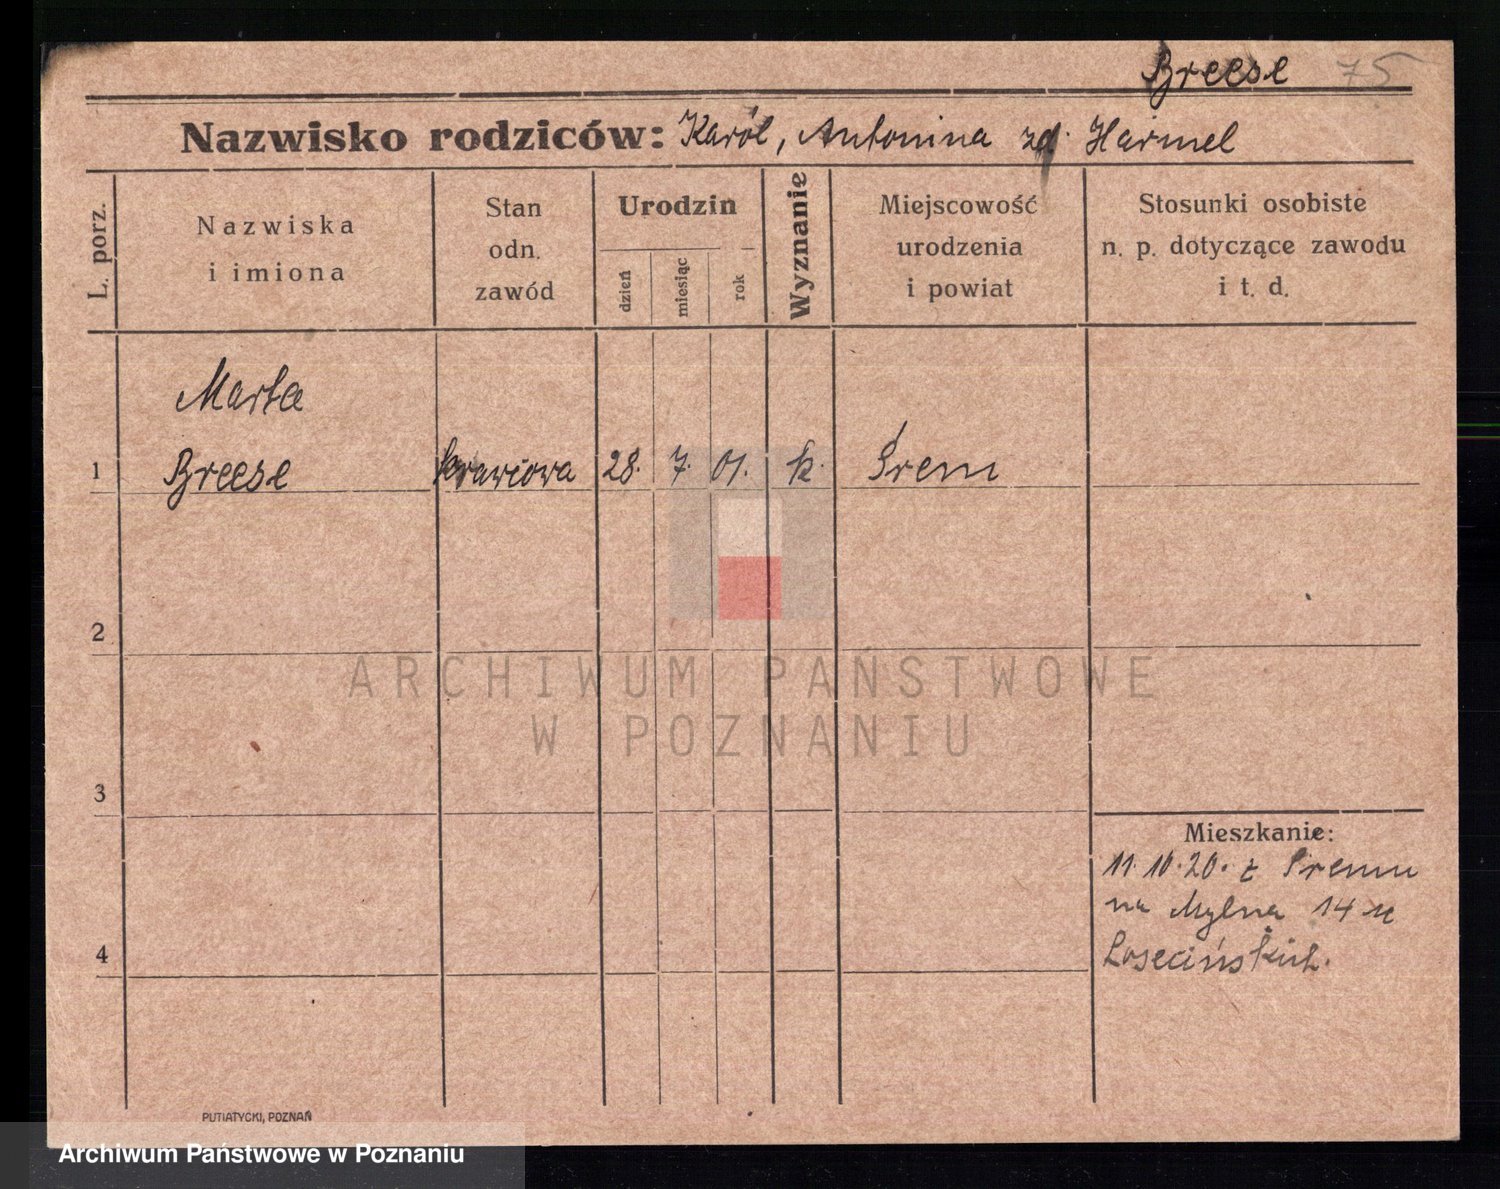 Breese 75
Nazwisko rodziców: Karól, Antonina zd. Harmel
L. porz.
Nazwiska
i imiona
Stan
odn.
zawód
Urodzin
dzień
miesiąc
rok
Wyznanie
Miejscowość
urodzenia
i powiat
Stosunki osobiste
n. p. dotyczące zawodu
i t. d.
Marta
1 Breese krawcowa 28. 7. 01. k. Śrem
2
ARCHIWUM PAŃSTWOWE
W POZNANIU
3
Mieszkanie:
11.10.20. z Śremu
na Mylna 14 u
4
PUTIATYCKI, POZNAŃ
Archiwum Państwowe w Poznaniu